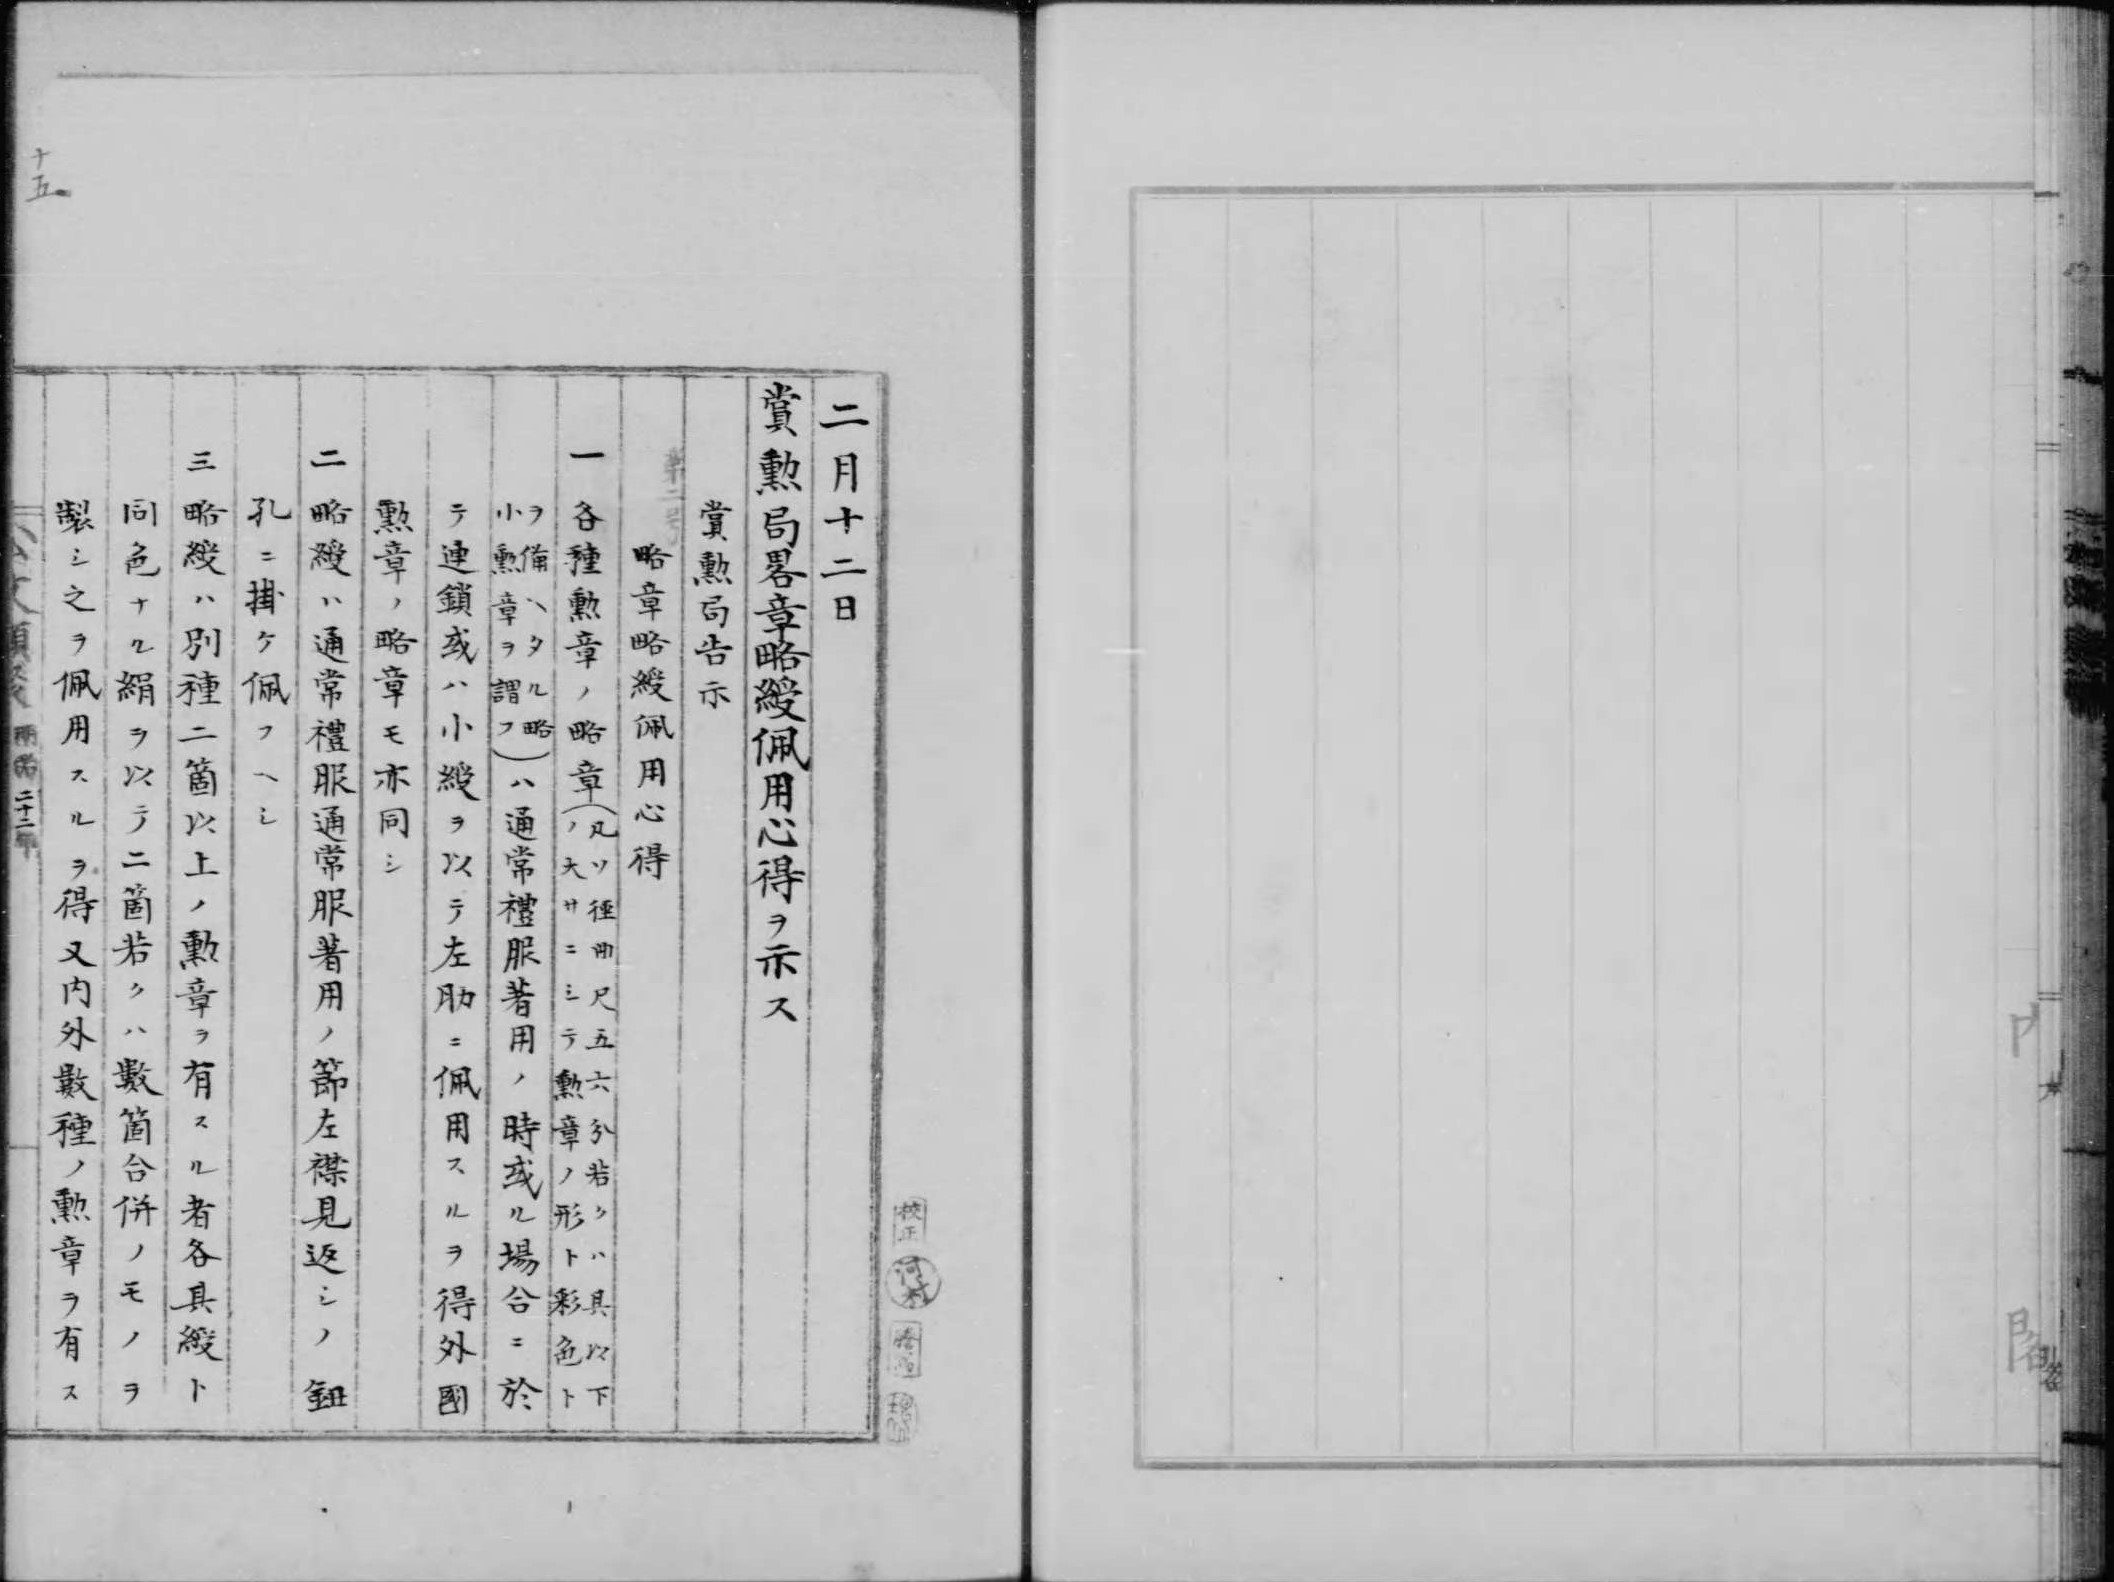 十五
二月十二日
賞勲局畧章略綬佩用心得ヲ示ス
賞勲局告示
略章略綬佩用心得
一 各種勲章ノ略章(凡ソ徑曲尺五六分若クハ具以下
ノ大サニシテ勲章ノ形ト彩色ト
ヲ備ヘタル略
小勲章ヲ謂フ)ハ通常禮服著用ノ時或ル場合ニ於
テ連鎖或ハ小綬ヲ以テ左肋ニ佩用スルヲ得外國
勲章ノ略章モ亦同シ
二 略綬ハ通常禮服通常服著用ノ節左襟見返シノ鈕
孔ニ掛ケ佩フヘシ
三 略綬ハ別種二箇以上ノ勲章ヲ有スル者各其綬ト
同色ナル絹ヲ以テ二箇若クハ數箇合併ノモノヲ
製シ之ヲ佩用スルヲ得又内外數種ノ勲章ヲ有ス
校正
河村
内
閣